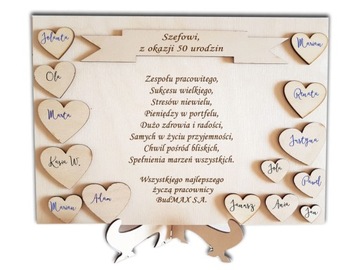 Szefowi,
z okazji 50 urodzin
Zespołu pracowitego,
Sukcesu wielkiego,
Stresów niewielu,
Pieniędzy w portfelu,
Dużo zdrowia i radości,
Samych w życiu przyjemności,
Chwil pośród bliskich,
Spełnienia marzeń wszystkich.
Wszystkiego najlepszego
życzą pracownicy
BudMAX S.A.
Jolanta
Ola
Marta
Kasia W.
Marian
Adam
Marian
Renata
Justyna
Jola
Paweł
Janusz
Ania
Jan